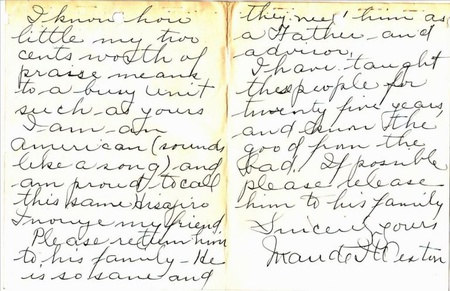 I know how
little my two
cents worth of
praise means
to a busy unit
such as yours
I am - an
American (sounds
like a song) and
am proud to call
this same Hisajiro
Inouye my friend.
Please return him
to his family - He
is so sane and
they need him as
a Father - and
advisor,
I have taught
these people for
twenty five years,
and know the
good from the
bad. If possible
please release
him to his family
Sincerely yours
Maude